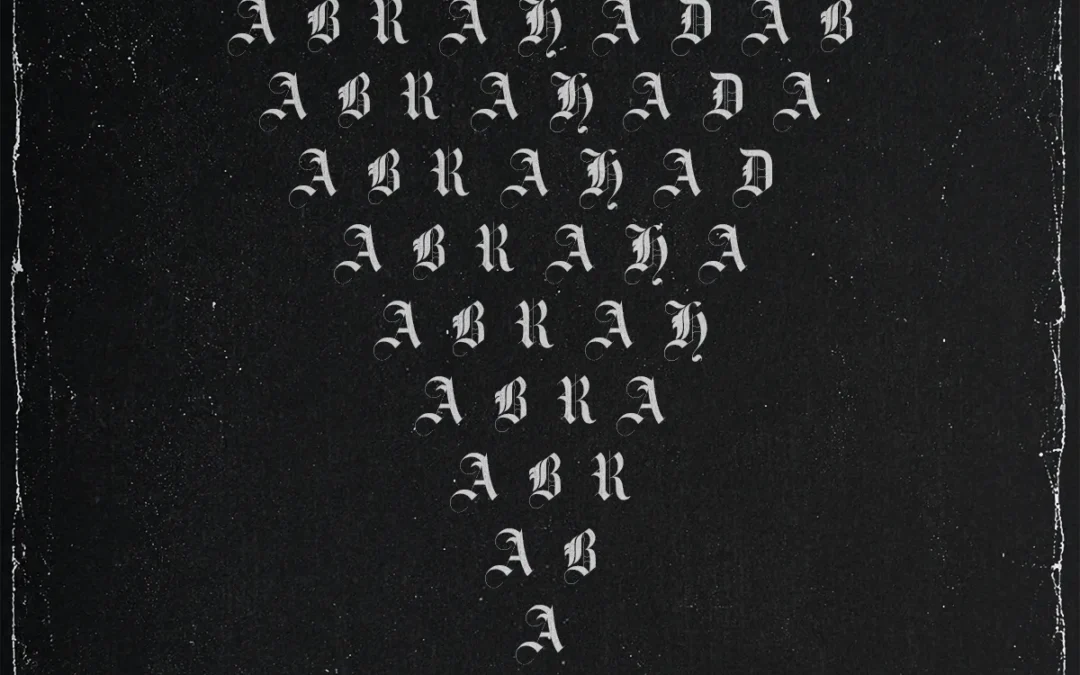 A B R A H A D A B
A B R A H A D A
A B R A H A D
A B R A H A
A B R A H
A B R A
A B R
A B
A